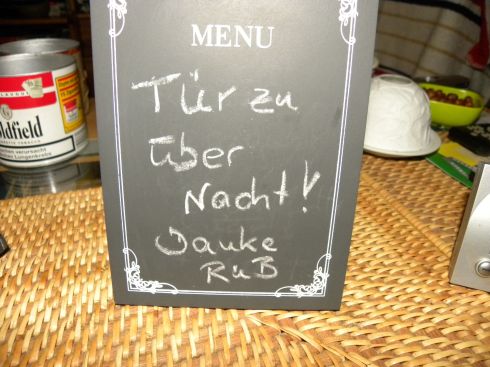 MENU
Tür zu
über
Nacht!
Danke
RuB
oldfield